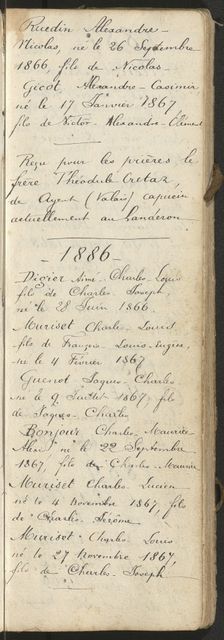 Ruedin Alexandre-
Nicolas, né le 26 Septembre
1866 fils de Nicolas.
Gicot, Alexandre-Casimir,
né le 17 Janvier 1867
fils de Victor-Alexandre-Clément
Reçu pour les prières le
frère Théodule
de Agent (Valais), capucin
actuellement au Landeron
- 1886 -
Digier Aimé-Charles-Louis
fils de Charles-Joseph
né le 28 Juin 1866.
Muriset Charles-Louis
fils de François-Louis-Eugène,
né le 4 Février 1867
Guenot Jaques-Charles
né le 9 Juillet 1867 fils
de Jaques-Charles
Bonjour Charles-Maurice-
né le 22 Septembre
1867, fils de Charles-Maurice
Muriset Charles-Lucien
né le 4 Novembre 1867, fils
de Charles-Jérôme
Muriset Charles-Louis
né le 27 Novembre 1867,
fils de Charles-Joseph